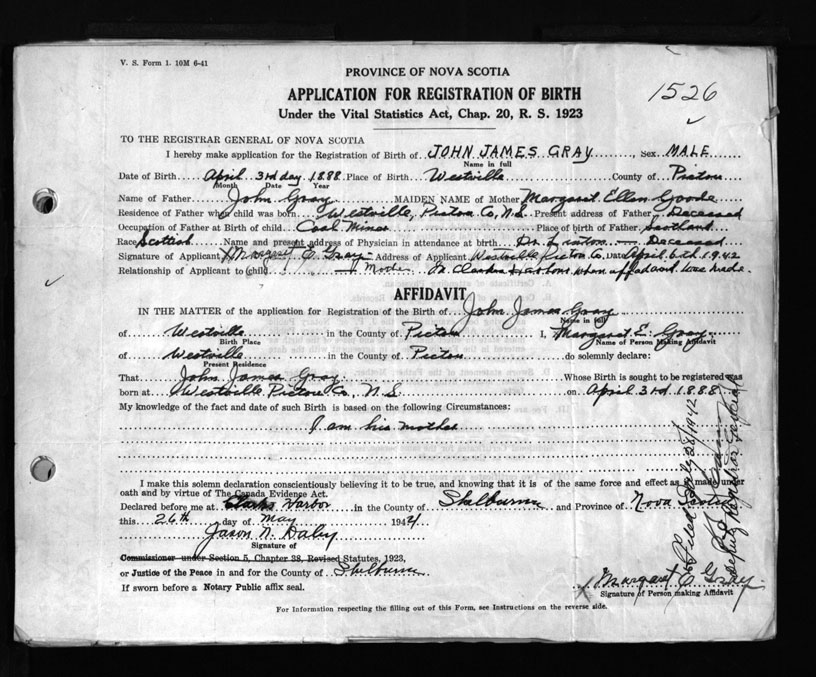 V. S. Form 1. 10M 6-41
PROVINCE OF NOVA SCOTIA
APPLICATION FOR REGISTRATION OF BIRTH
Under the Vital Statistics Act, Chap. 20, R. S. 1923
1526
TO THE REGISTRAR GENERAL OF NOVA SCOTIA
I hereby make application for the Registration of Birth of JOHN JAMES GRAY, Sex MALE
Name in full
Date of Birth April 3rd day 1888 Place of Birth Westville County of Pictou
Month Date Year
Name of Father John Gray MAIDEN NAME of Mother Margaret Ellen Goode
Residence of Father when child was born Westville, Pictou Co, N.S. Present address of Father Deceased
Occupation of Father at Birth of child Coal Miner Place of Birth of father Scotland
Race Scottish Name and present address of Physician in attendance at birth Dr. Deceased
Signature of Applicant Margaret E Gray Address of Applicant Westville Pictou Co. Date April 6th 1942
Relationship of Applicant to (child) Mother when affadavit was made
AFFIDAVIT
IN THE MATTER of the application for Registration of the Birth of John James Gray
Name in full
of Westville in the County of Pictou I, Margaret E. Gray
Birth Place Name of Person Making Affidavit
of Westville in the County of Pictou do solemnly declare:
Present Residence
That John James Gray Whose Birth is sought to be registered was
born at Westville Pictou Co, N.S. on April 3rd 1888
My knowledge of the fact and date of such Birth is based on the following Circumstances:
I am his mother
I make this solemn declaration conscientiously believing it to be true, and knowing that it is of the same force and effect as if made under
oath and by virtue of The Canada Evidence Act.
Declared before me at Clarks Harbor in the County of Shelburne and Province of Nova Scotia
this 26th day of May 1942
Jason N. Daley
Signature of
Commissioner under Section 5, Chapter 38, Revised Statutes, 1923,
or Justice of the Peace in and for the County of Shelburne
If sworn before a Notary Public affix seal.
Margaret E Gray
Signature of Person making Affidavit
Filed July 28/1942
Deputy Registrar General
For Information respecting the filling out of this Form, see Instructions on the reverse side.